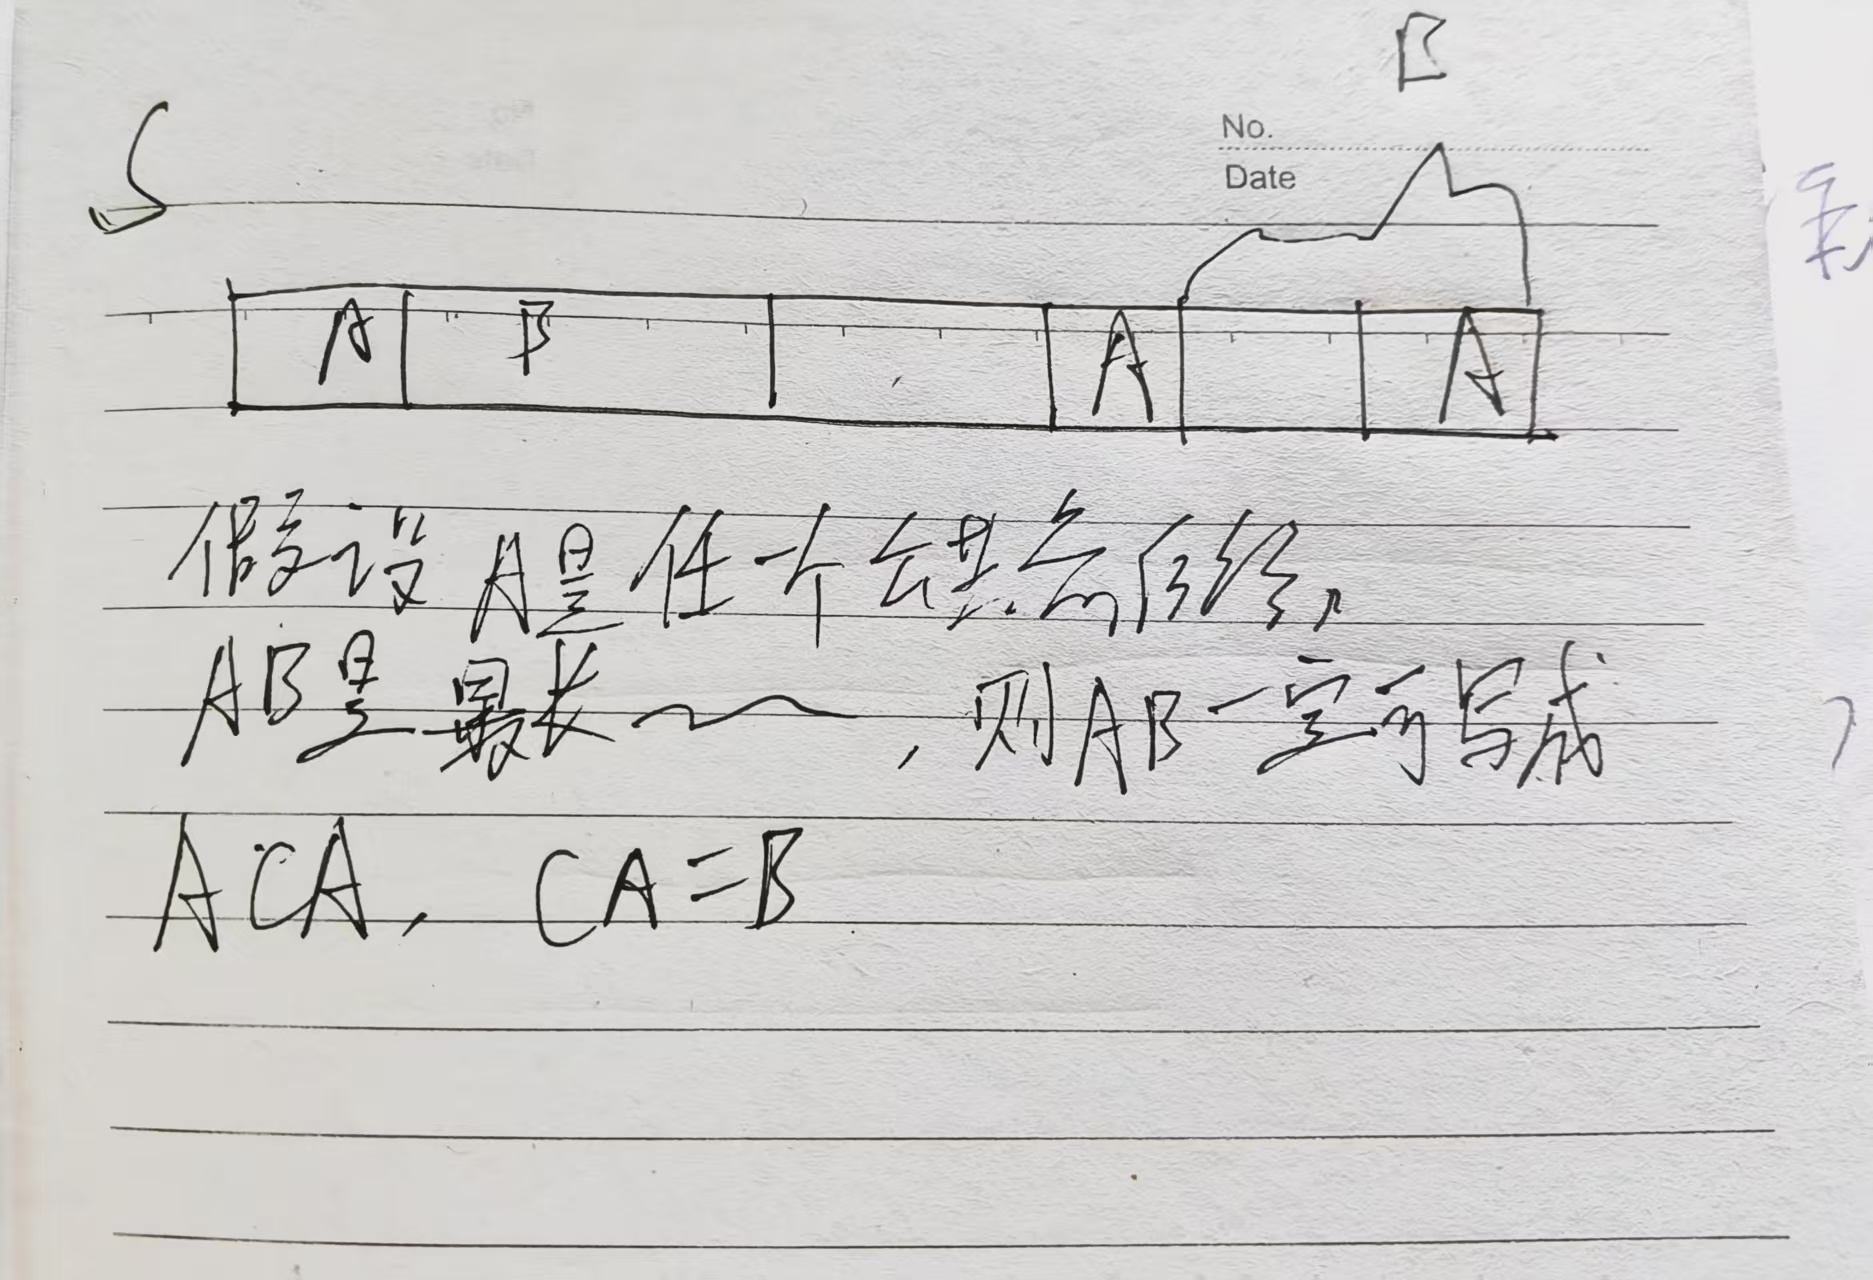 B
No.
Date
S
A B A A
假设A是任一个公共前后缀,
AB是最长 ,则AB一定可写成
ACA, CA=B